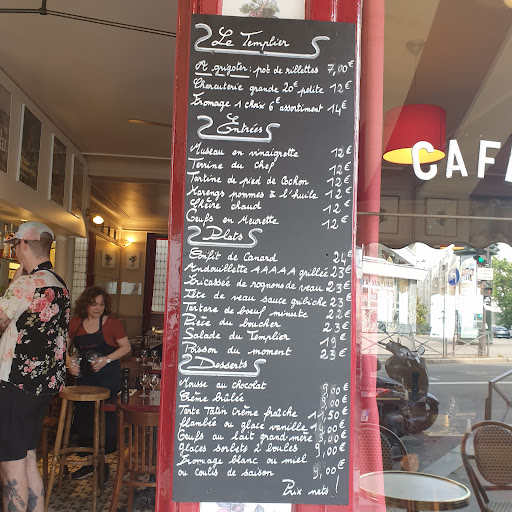 Le Templier
A grigoter : pot de rillettes 7,00€
Charcuterie grande 20€ petite 12€
Fromage 1 choix 6€ assortiment 14€
Entrées
Museau en vinaigrette 12€
Terrine du chef 12€
Tartine de pied de Cochon 12€
Harengs pommes à l'huile 12€
Chèvre chaud 12€
Œufs en Meurette 12€
Plats
Confit de Canard 24
Andouillette AAAAA grillée 23€
Fricassée de rognons de veau 23€
Tête de veau sauce gribiche 23€
Tartare de bœuf minute 22€
Pièce du boucher 23€
Salade du Templier 19€
Poisson du moment 23€
Desserts
Mousse au chocolat 9,00€
Crème brûlée 9,00€
Tarte Tatin crème fraîche 11,50
flambée ou glace vanille
Œufs au lait grand-mère 9,00€
Glaces sorbets 2 boules 9,00€
Fromage blanc ou miel
ou coulis de saison 9,00€
Prix nets !
CAFÉ